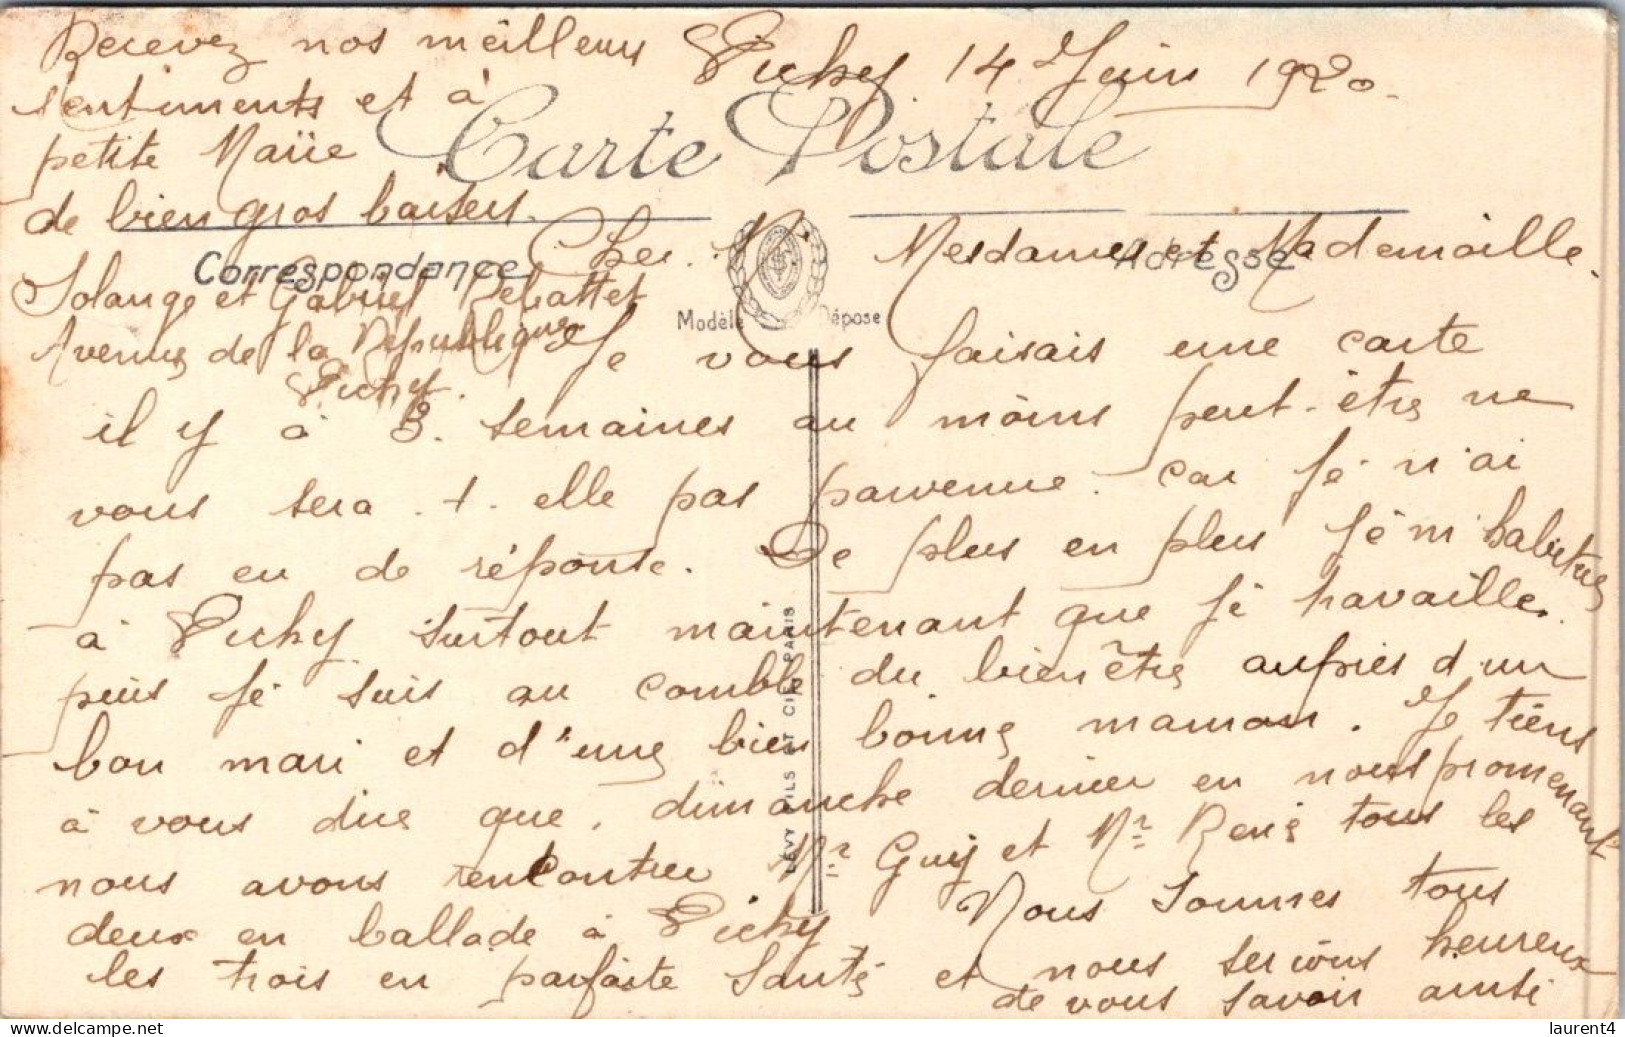 Vichy 14 Juin 1920.
Carte Postale
Correspondance
Adresse
Modèle Déposé
LEVY FILS ET CIE PARIS
Mesdames et Mademoiselle.
Je vous faisais une carte
il y à 3. semaines au moins peut-être ne
vous sera-t-elle pas parvenue. car je n'ai
pas eu de réponse. De plus en plus je m'habitue
à Vichy surtout maintenant que je travaille.
puis je suis au comble du bien être auprès d'un
bon mari et d'une bien bonne maman. Je tiens
à vous dire que, dimanche dernier en nous promenant
nous avons rencontrer Mr Guy et Mr René tous les
deux en ballade à Vichy Nous sommes tous
les trois en parfaite santé et nous serions heureux
de vous savoir ainsi
Recevez nos meilleurs
sentiments et à
petite Marie
de bien gros baisers.
Solange et Gabriel
Avenue de la République
Vichy.
laurent4